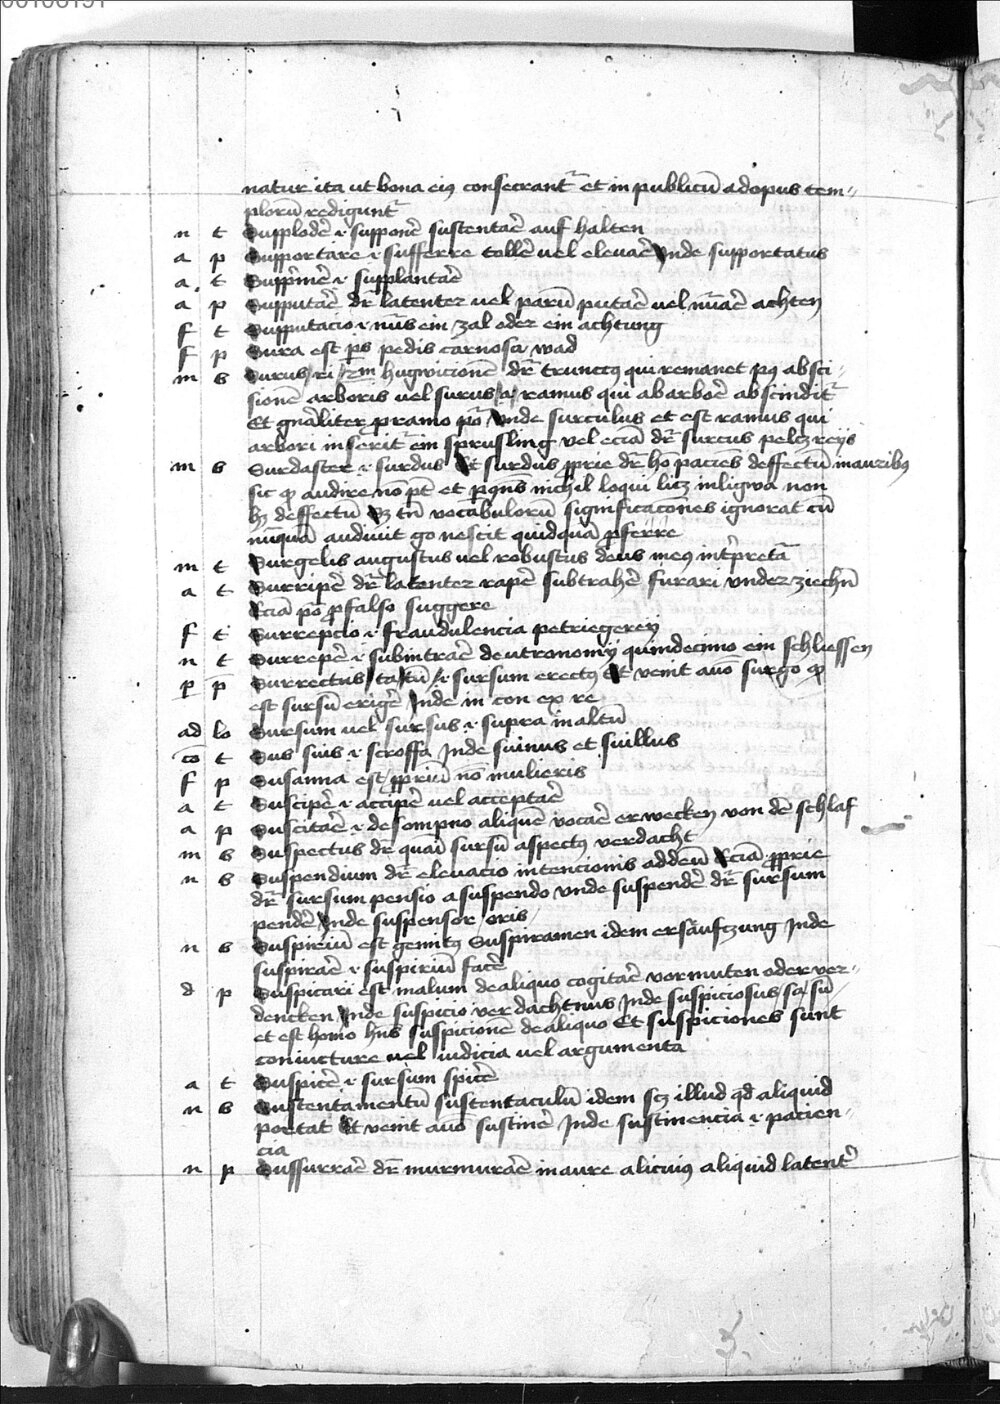 natur ita ut bona eiꝰ consecrant̉ et in publicū ad opus tem-
plorū redigunt̉
n t Supplodē ⁊ supponē sustentaē auf halten
a p Supportare ⁊ sufferre tollē vel eleuaē vnde supportatus
a t Supp̉mē ⁊ supplantaē
a p Supputaē dr̄ latenter vel parū putaē vel nūaē achten
f t Supputacio ⁊ nūs ein zal oder ein achtung
f p Sura est ꝑs pedis carnosa wad
m s Surus ri hugwicionē dr̄ truncꝰ qui remanet pꝰ absci-
sionē arboris vel surus ramus qui ab arboē abscindit̉
Et gn̄aliter ꝓ ramo pō vnde surculus et est ramus qui
arbori inserit̉ ein sprusling vel eciā dr̄ surcus peltzreys
m s Surdaster ⁊ surdus Et surdus ꝓprie dr̄ hō paciēs deffectū in auribꝰ
sic ꝙ audire nō pt̄ et ꝑ ꝯn̄s nichil loqui licꝫ in ligwa non
hꝫ deffectū sꝫ tn̄ vocabulorū significacōnes ignorat cū
nūquā audiuit gͦ nescit quidquā ꝓferre
m t Surgelis augustus vel robustus deus meꝰ int̉pretā
a t Surripē dr̄ latenter rapē subtrahē furari vnder ziechn̄
Eciā pō ꝓ falso suggere
f t Surrepcio ⁊ fraudulencia petriegerey
n t Surrepē ⁊ subintraē deutronomy quindecimo ein schliessen
p p Surrectus ta tū ⁊ sursum erectꝰ Et venit a uōb surgo ꝙ
est sursū erigē Inde in con ex re
ad lo Sursum vel sursus ⁊ supra in altū
cō t Sus suis ⁊ scroffa Inde suinus et suillus
f p Susanna est ꝓpriū nō mulieris
a t Suscipē ⁊ accipē vel acceptaē
a p Suscitaē ⁊ de sompno aliquē vocaē erwecken von dē schlaf
m s Suspectus dr̄ quasi sursū aspectꝰ verdacht
n s Suspendium dr̄ eleuacio intencionis ad deū Eciā ꝓprie
dr̄ sursum pensio a suspendo vnde suspendē dr̄ sursum
pendē Inde suspensor oris
n s Suspiriū est gemitꝰ Suspiramen idem ersäuftzung Inde
suspiraē ⁊ suspiriū facē
d p Suspicari est malum de aliquo cogitaē vormuten oder ver-
dencken Inde suspicio verdachtnus Inde suspiciosus sa sū
et est homo hn̄s suspicionē de aliquo Et suspiciones sunt
coniucture vel iudicia vel argumenta
a t Suspicē ⁊ sursum spicē
n s Sustentamentū sustentaculū idem scꝫ illud qd̄ aliquid
portat Et venit a uōb sustinē Inde sustinencia ⁊ pacien-
cia
n p Sussurraē dr̄ murmuraē in aure alicuiꝰ aliquid latent̉